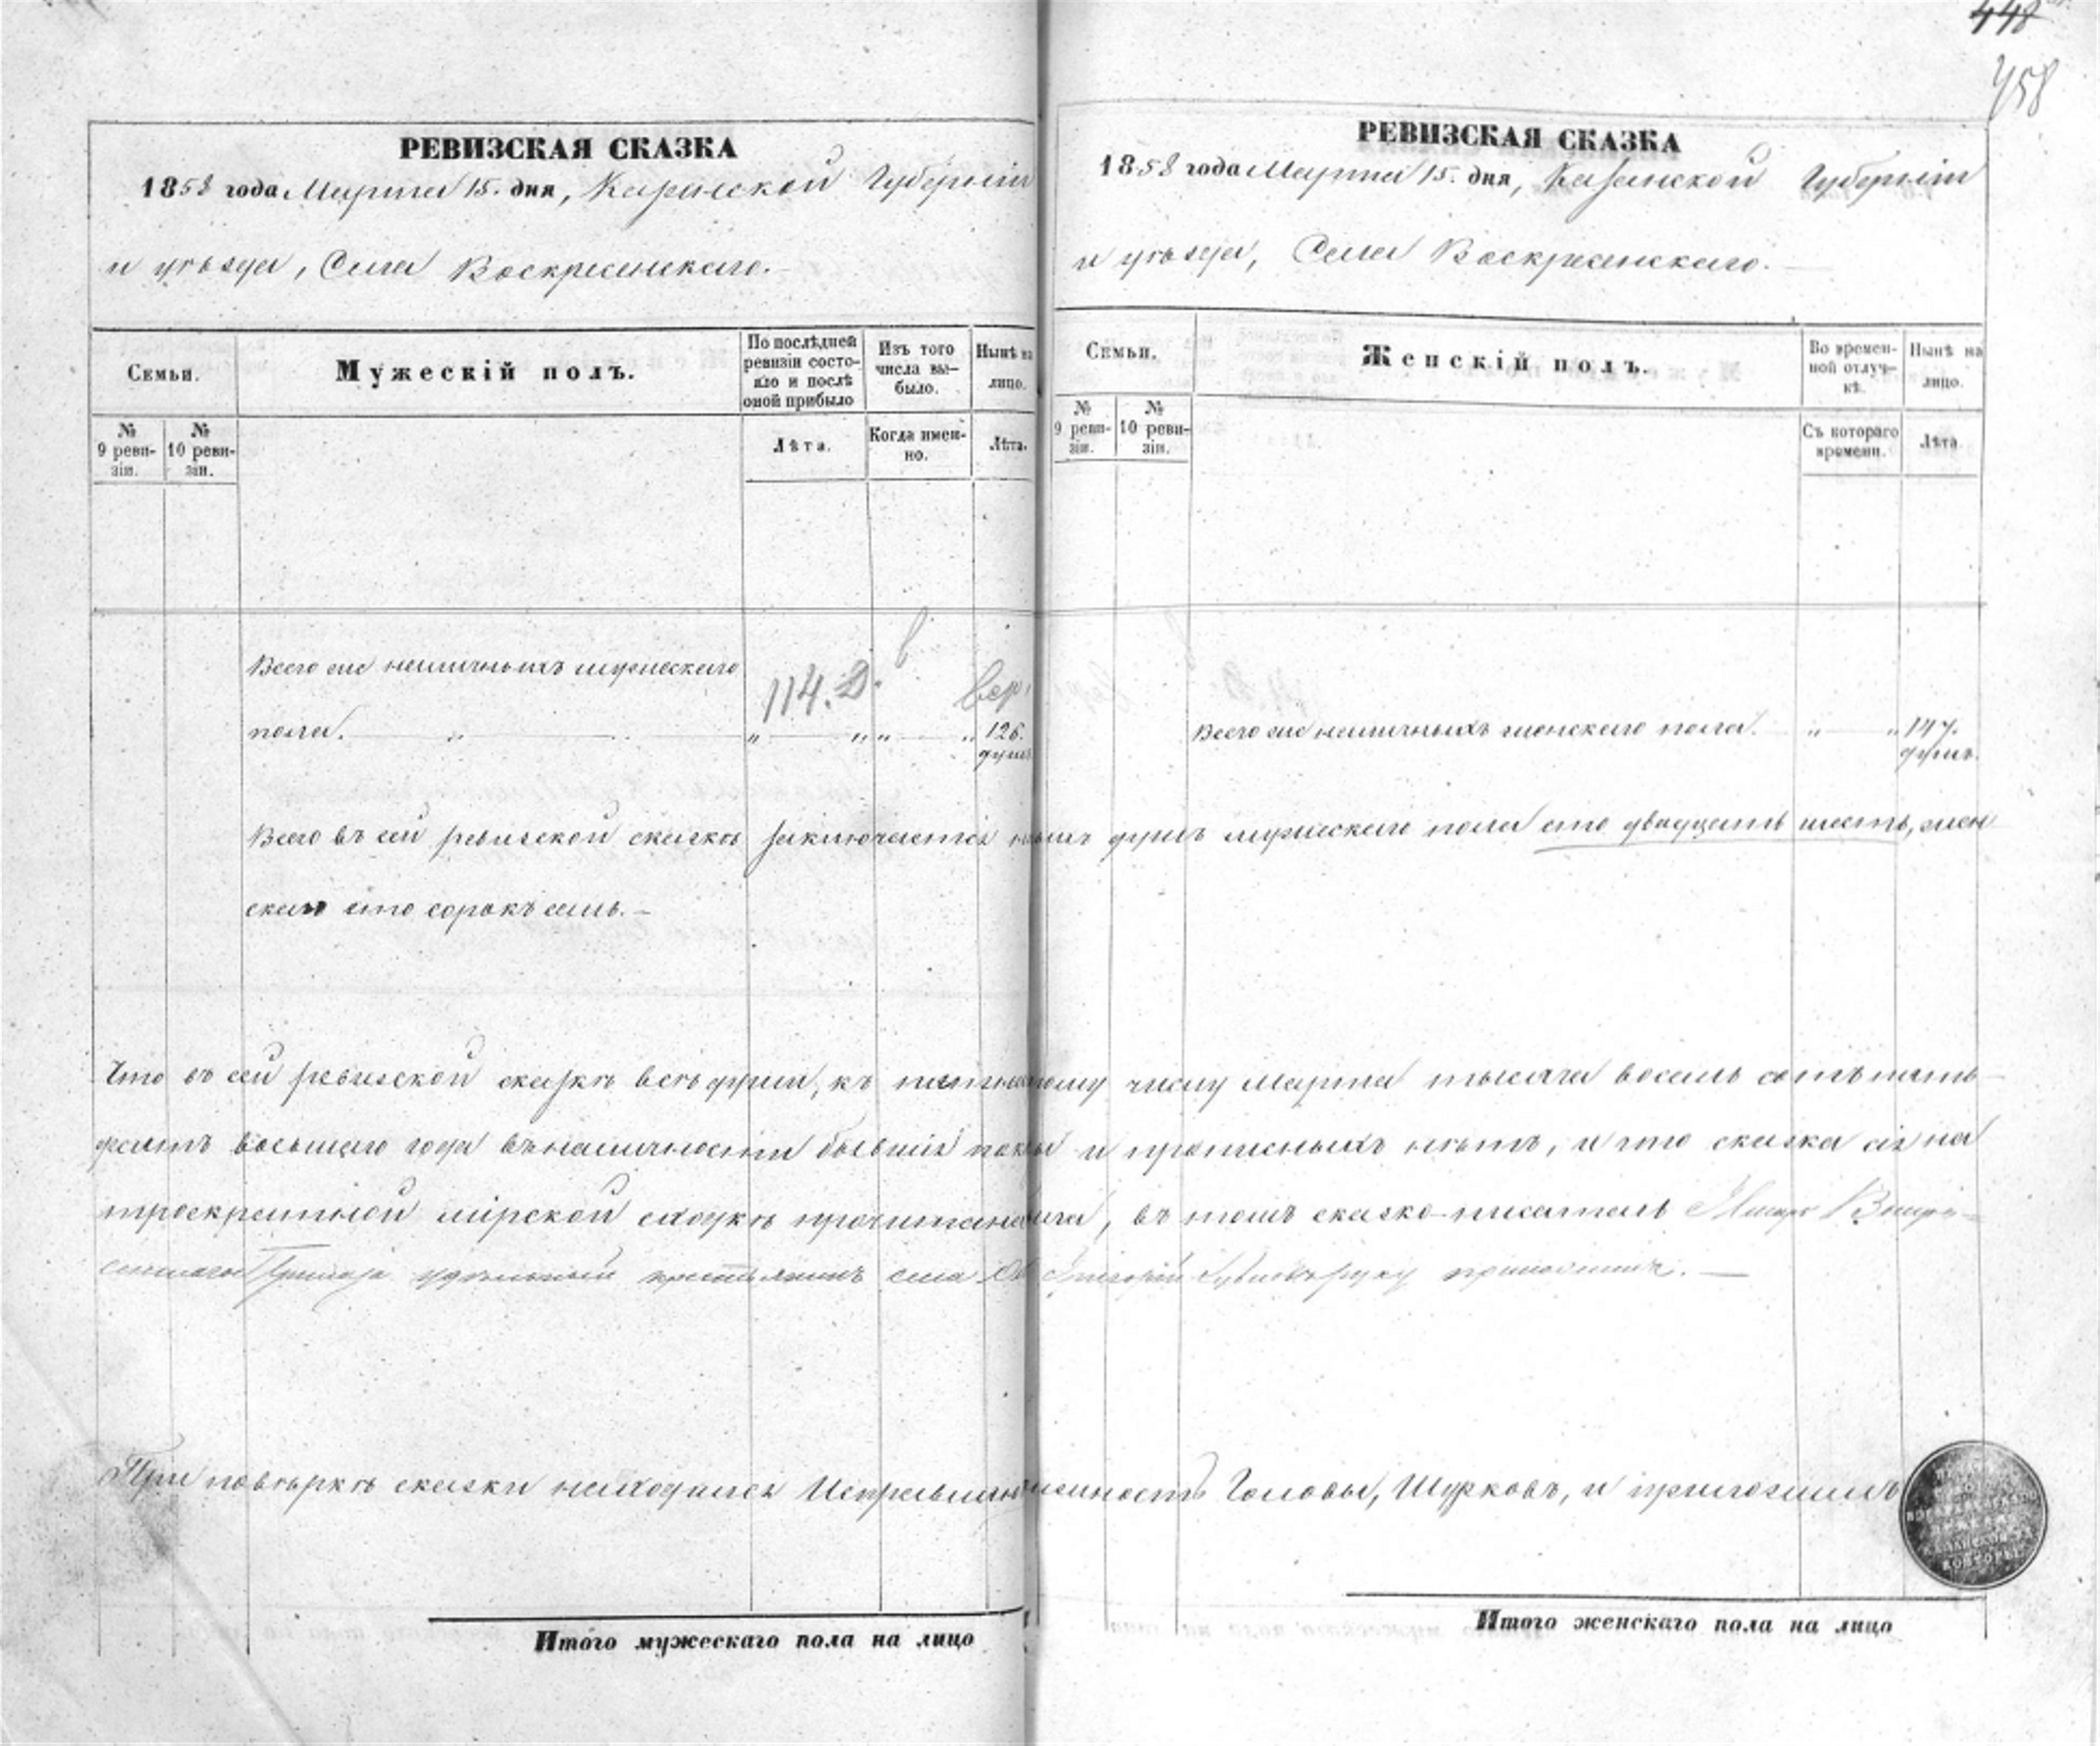 448
458
РЕВИЗСКАЯ СКАЗКА
1858 года Марта 15. дня, Казанской Губерніи
и уѣзда, Села Воскресенскаго.
Семьи.
Мужескій полъ.
По послѣдней ревизіи состояло и послѣ оной прибыло
Изъ того числа выбыло.
Нынѣ на лицо.
№ 9 ревизіи.
№ 10 ревизіи.
Лѣта.
Когда именно.
Лѣта.
Всего же наличныхъ мужескаго
114. Д.
пола. 126. душъ
Всего въ сей ревизской сказкѣ заключается
скаго сто сорокъ семь.
РЕВИЗСКАЯ СКАЗКА
1858 года Марта 15. дня, Казанской Губерніи
и уѣзда, Села Воскресенскаго.
Семьи.
Женскій полъ.
Во временной отлучкѣ.
Нынѣ на лицо.
№ 9 ревизіи.
№ 10 ревизіи.
Съ котораго времени.
Лѣта
Всего же наличныхъ женскаго пола. 147. душъ.
душъ мужескаго пола сто двадцать шесть, жен
Что въ сей ревизской сказкѣ всѣ души, къ числу Марта тысяча восемь сотъ пять
десятъ восьмаго года въ наличности бывшія и прописныхъ нѣтъ, и что сказка сія на
мірской сходкѣ прочитана, въ томъ сказко-писатель
удѣльный крестьянинъ села Григорій руку приложилъ.
При повѣркѣ сказки находился Голова, Шурковъ, и приложилъ
КОНТОРЫ
Итого мужескаго пола на лицо
Итого женскаго пола на лицо